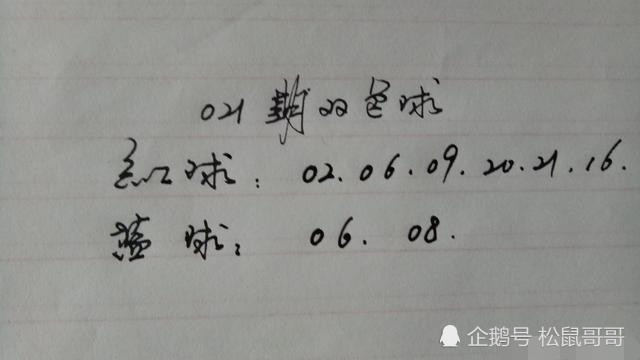 021期双色球
红球：02.06.09.20.21.16.
蓝球：06.08.
企鹅号 松鼠哥哥